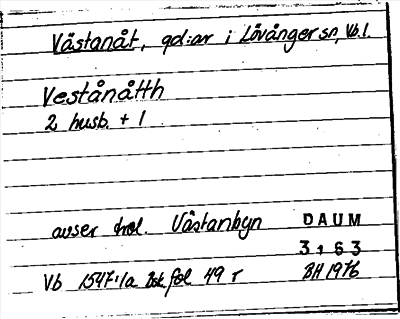 Västanåt, gd:ar i Lövånger sn, Vb.l.
Vestånåtth
2 husb. + 1
avser trol. Västanbyn DAUM
3163
Vb 1547:1a Bsk fol 49 r BH 1976